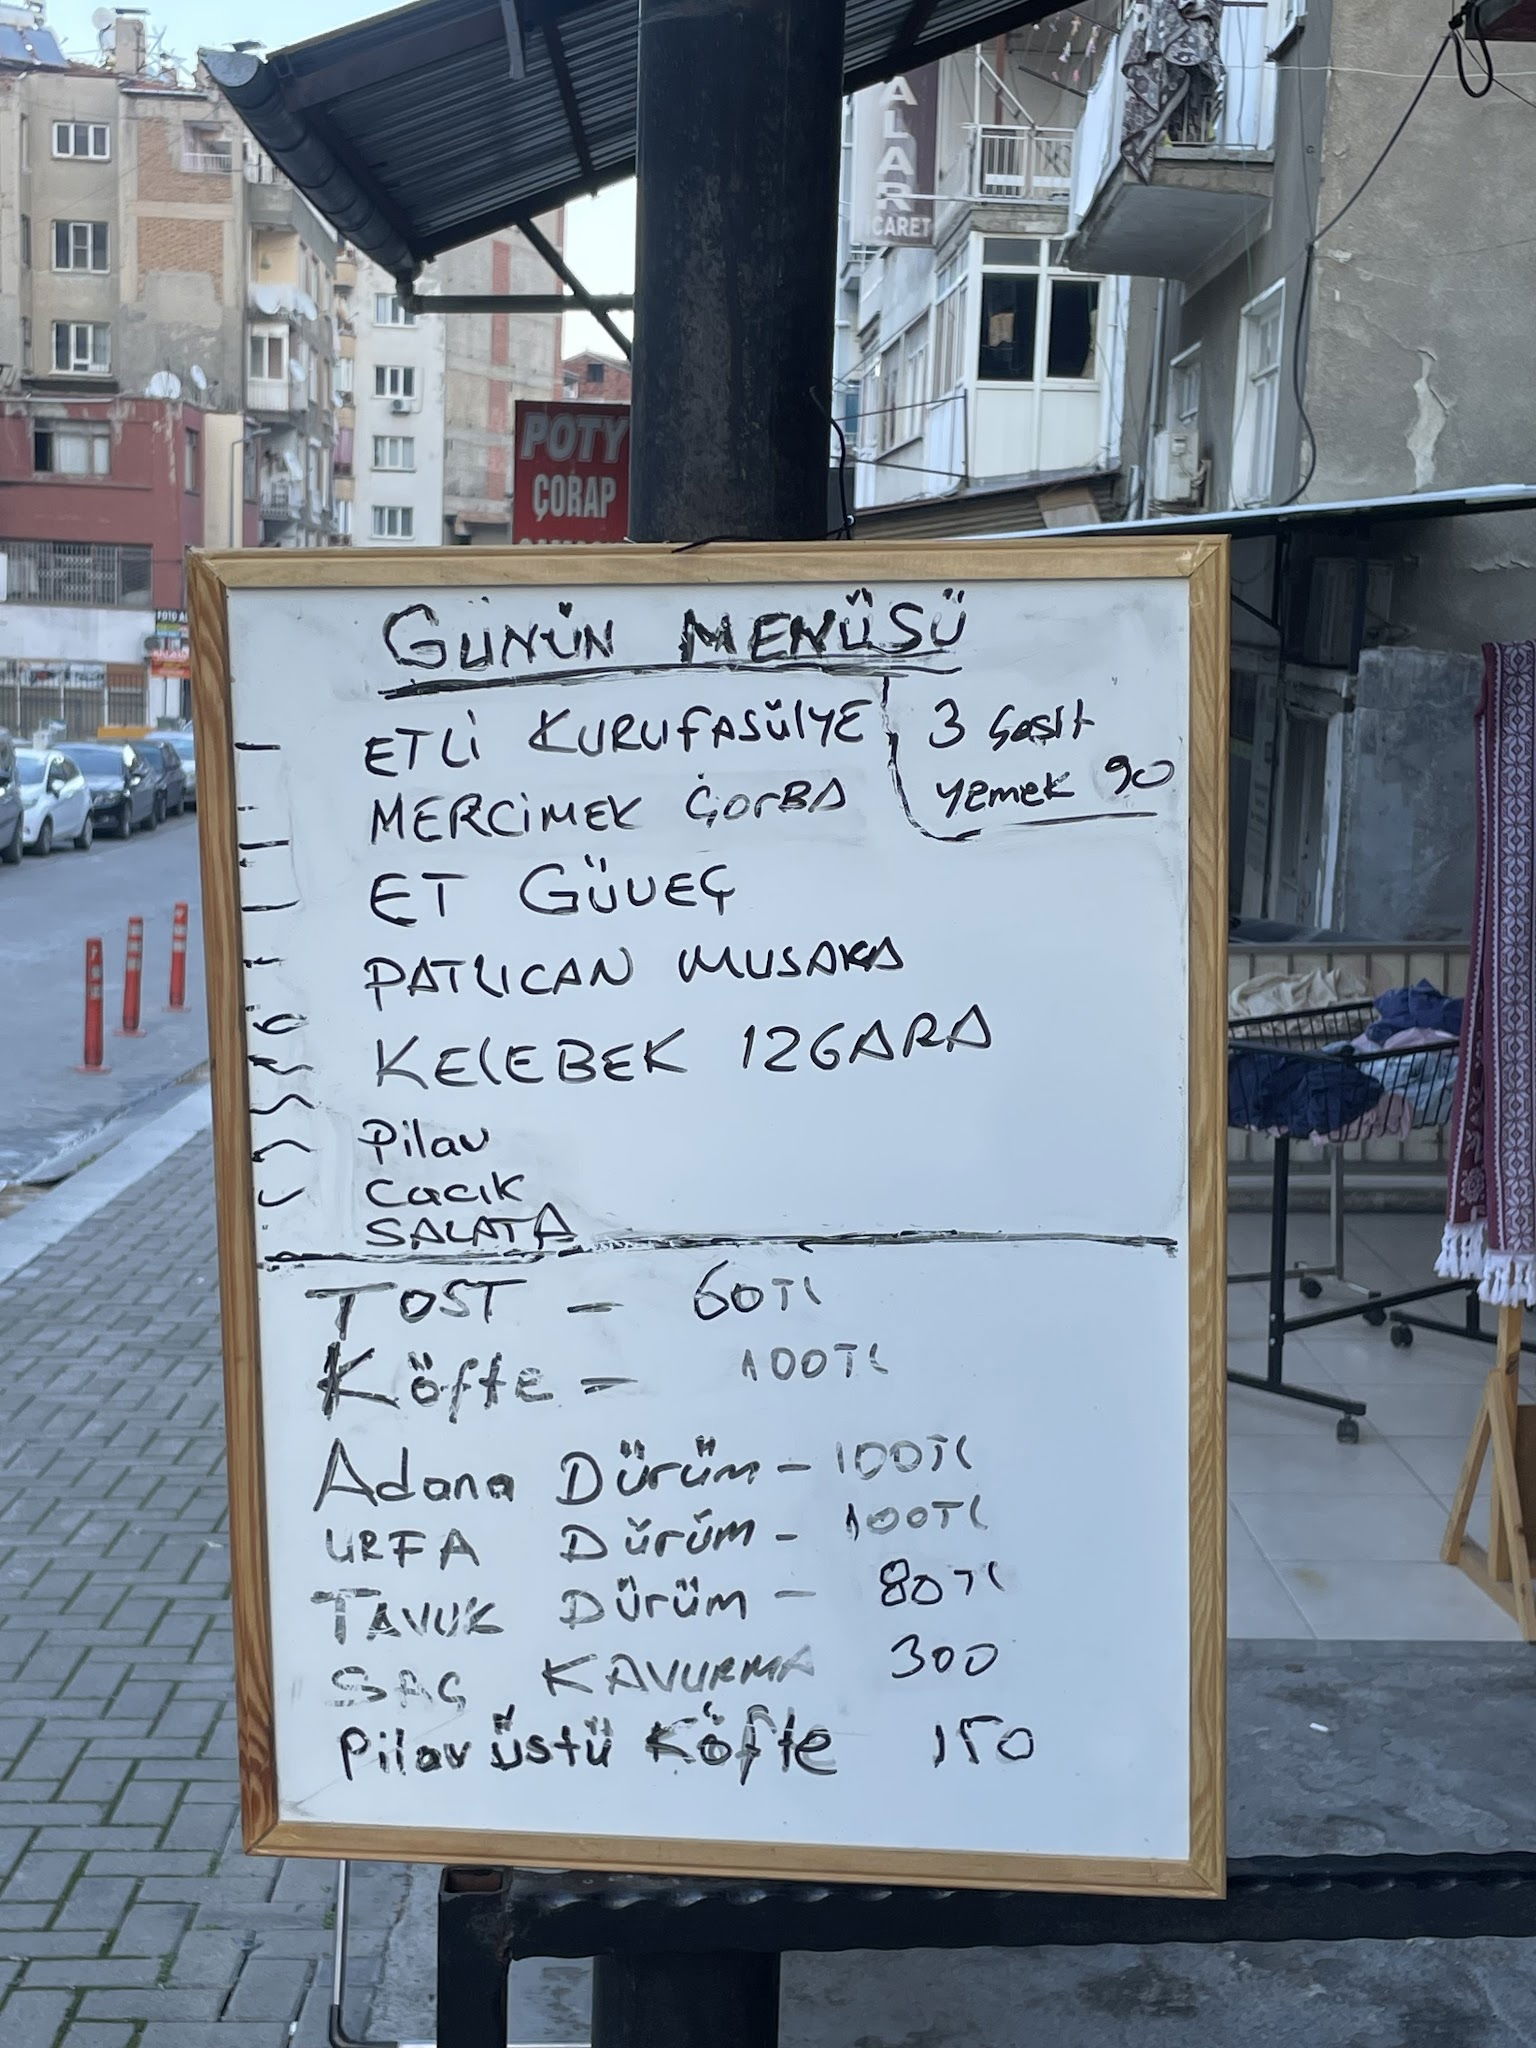 ALAR
CARET
POTY
ÇORAP
FOTO AL
GÜNÜN MENÜSÜ
ETLi KURUFASÜLYE
3 Çeşit
yemek 90
MERCiMEK ÇorBA
ET GÜVEÇ
PATLICAN MUSAKA
KELEBEK IZGARA
Pilav
Cacık
SALATA
TOST - 60TL
Köfte - 100TL
Adana Dürüm - 100TL
URFA Dürüm - 100TL
TAVUK Dürüm - 80TL
SAÇ KAVURMA 300
Pilav üstü Köfte 150